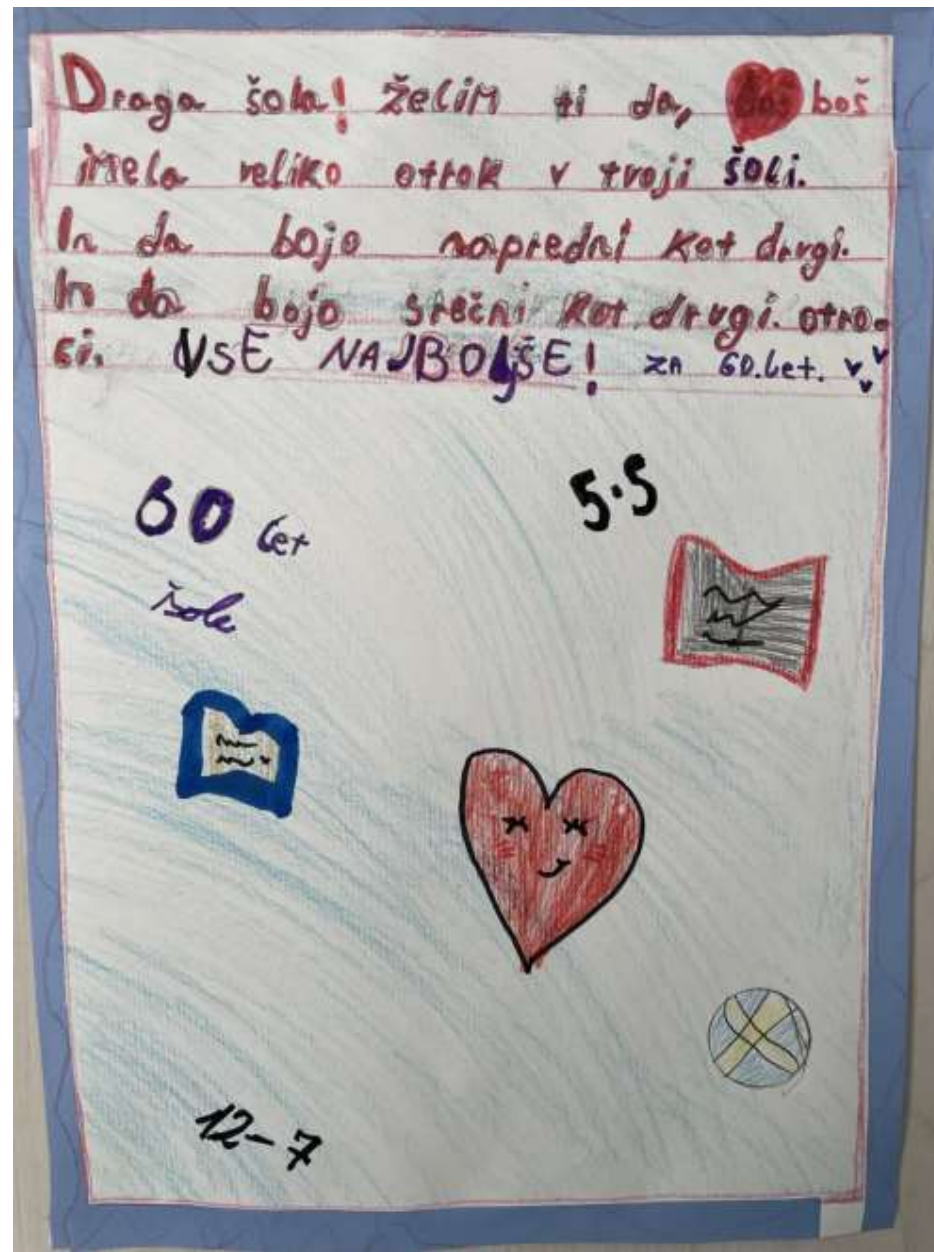 Draga šola! želim ti da, boš
imela veliko otrok v tvoji šoli.
In da bojo napredni kot drugi.
In da bojo srečni kot drugi. otro-
ci. VSE NAJBOLJŠE! ZA 60.let.
5·5
60 let
šole
12-7